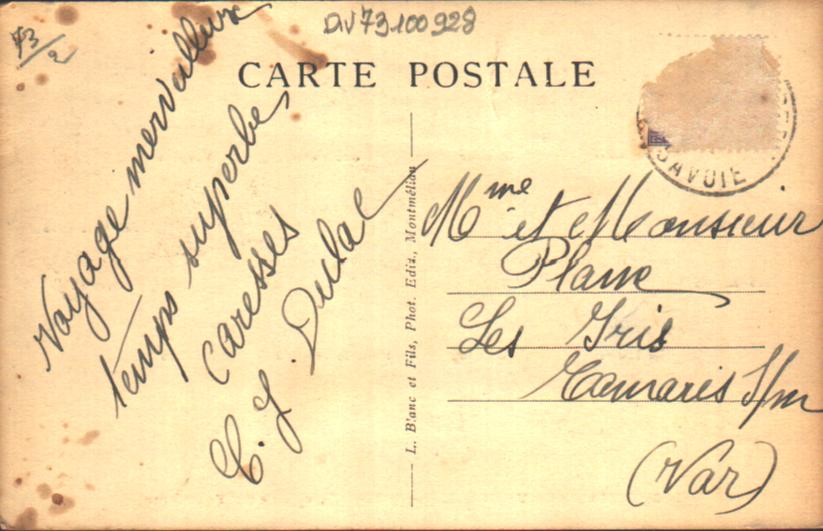 73/2
DV73.100 928
CARTE POSTALE
SAVOIE
Voyage merveilleux
temps superbe,
caresses
C. J. Dulac
L. Blanc et Fils, Phot. Edit., Montmélian
Mme et Monsieur
Plane
Les Gris
Tamaris S/m
(Var)